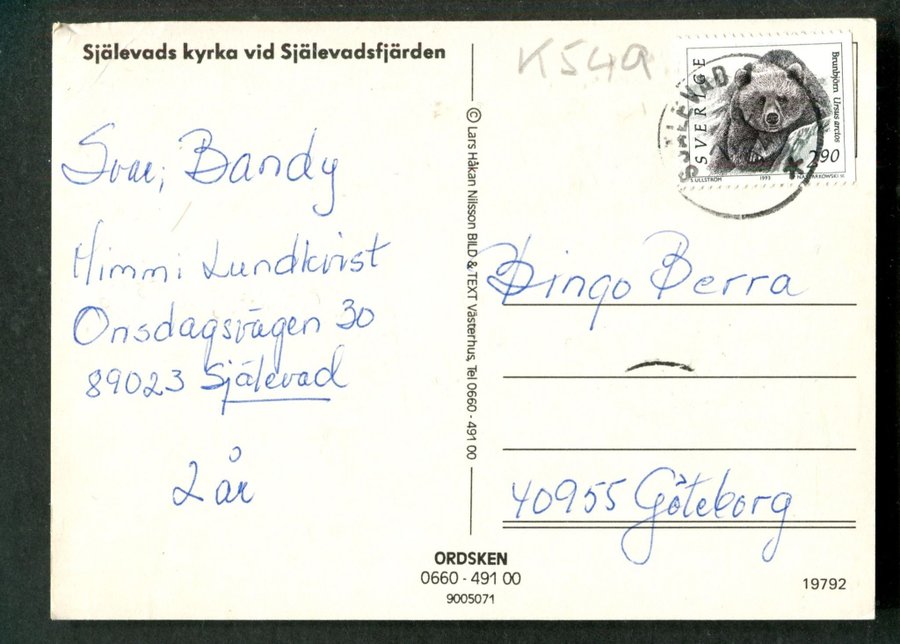 Själevads kyrka vid Själevadsfjärden
K549
SVERIGE
Brunbjörn Ursus arctos
2.90
S. ULLSTRÖM
1993
SJÄLEVAD
Svar; Bandy
Himmi Lundkvist
Onsdagsvägen 30
89023 Själevad
2 år
© Lars Håkan Nilsson BILD & TEXT Västerhus, Tel 0660 - 491 00
Bingo Berra
40955 Göteborg
ORDSKEN
0660 - 491 00
9005071
19792